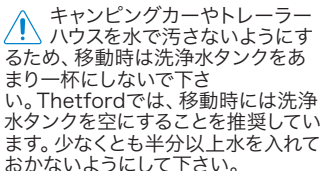 キャンピングカーやトレーラー
ハウスを水で汚さないようにす
るため、移動時は洗浄水タンクをあ
まり一杯にしないで下さ
い。Thetfordでは、移動時には洗浄
水タンクを空にすることを推奨してい
ます。少なくとも半分以上水を入れて
おかないようにして下さい。